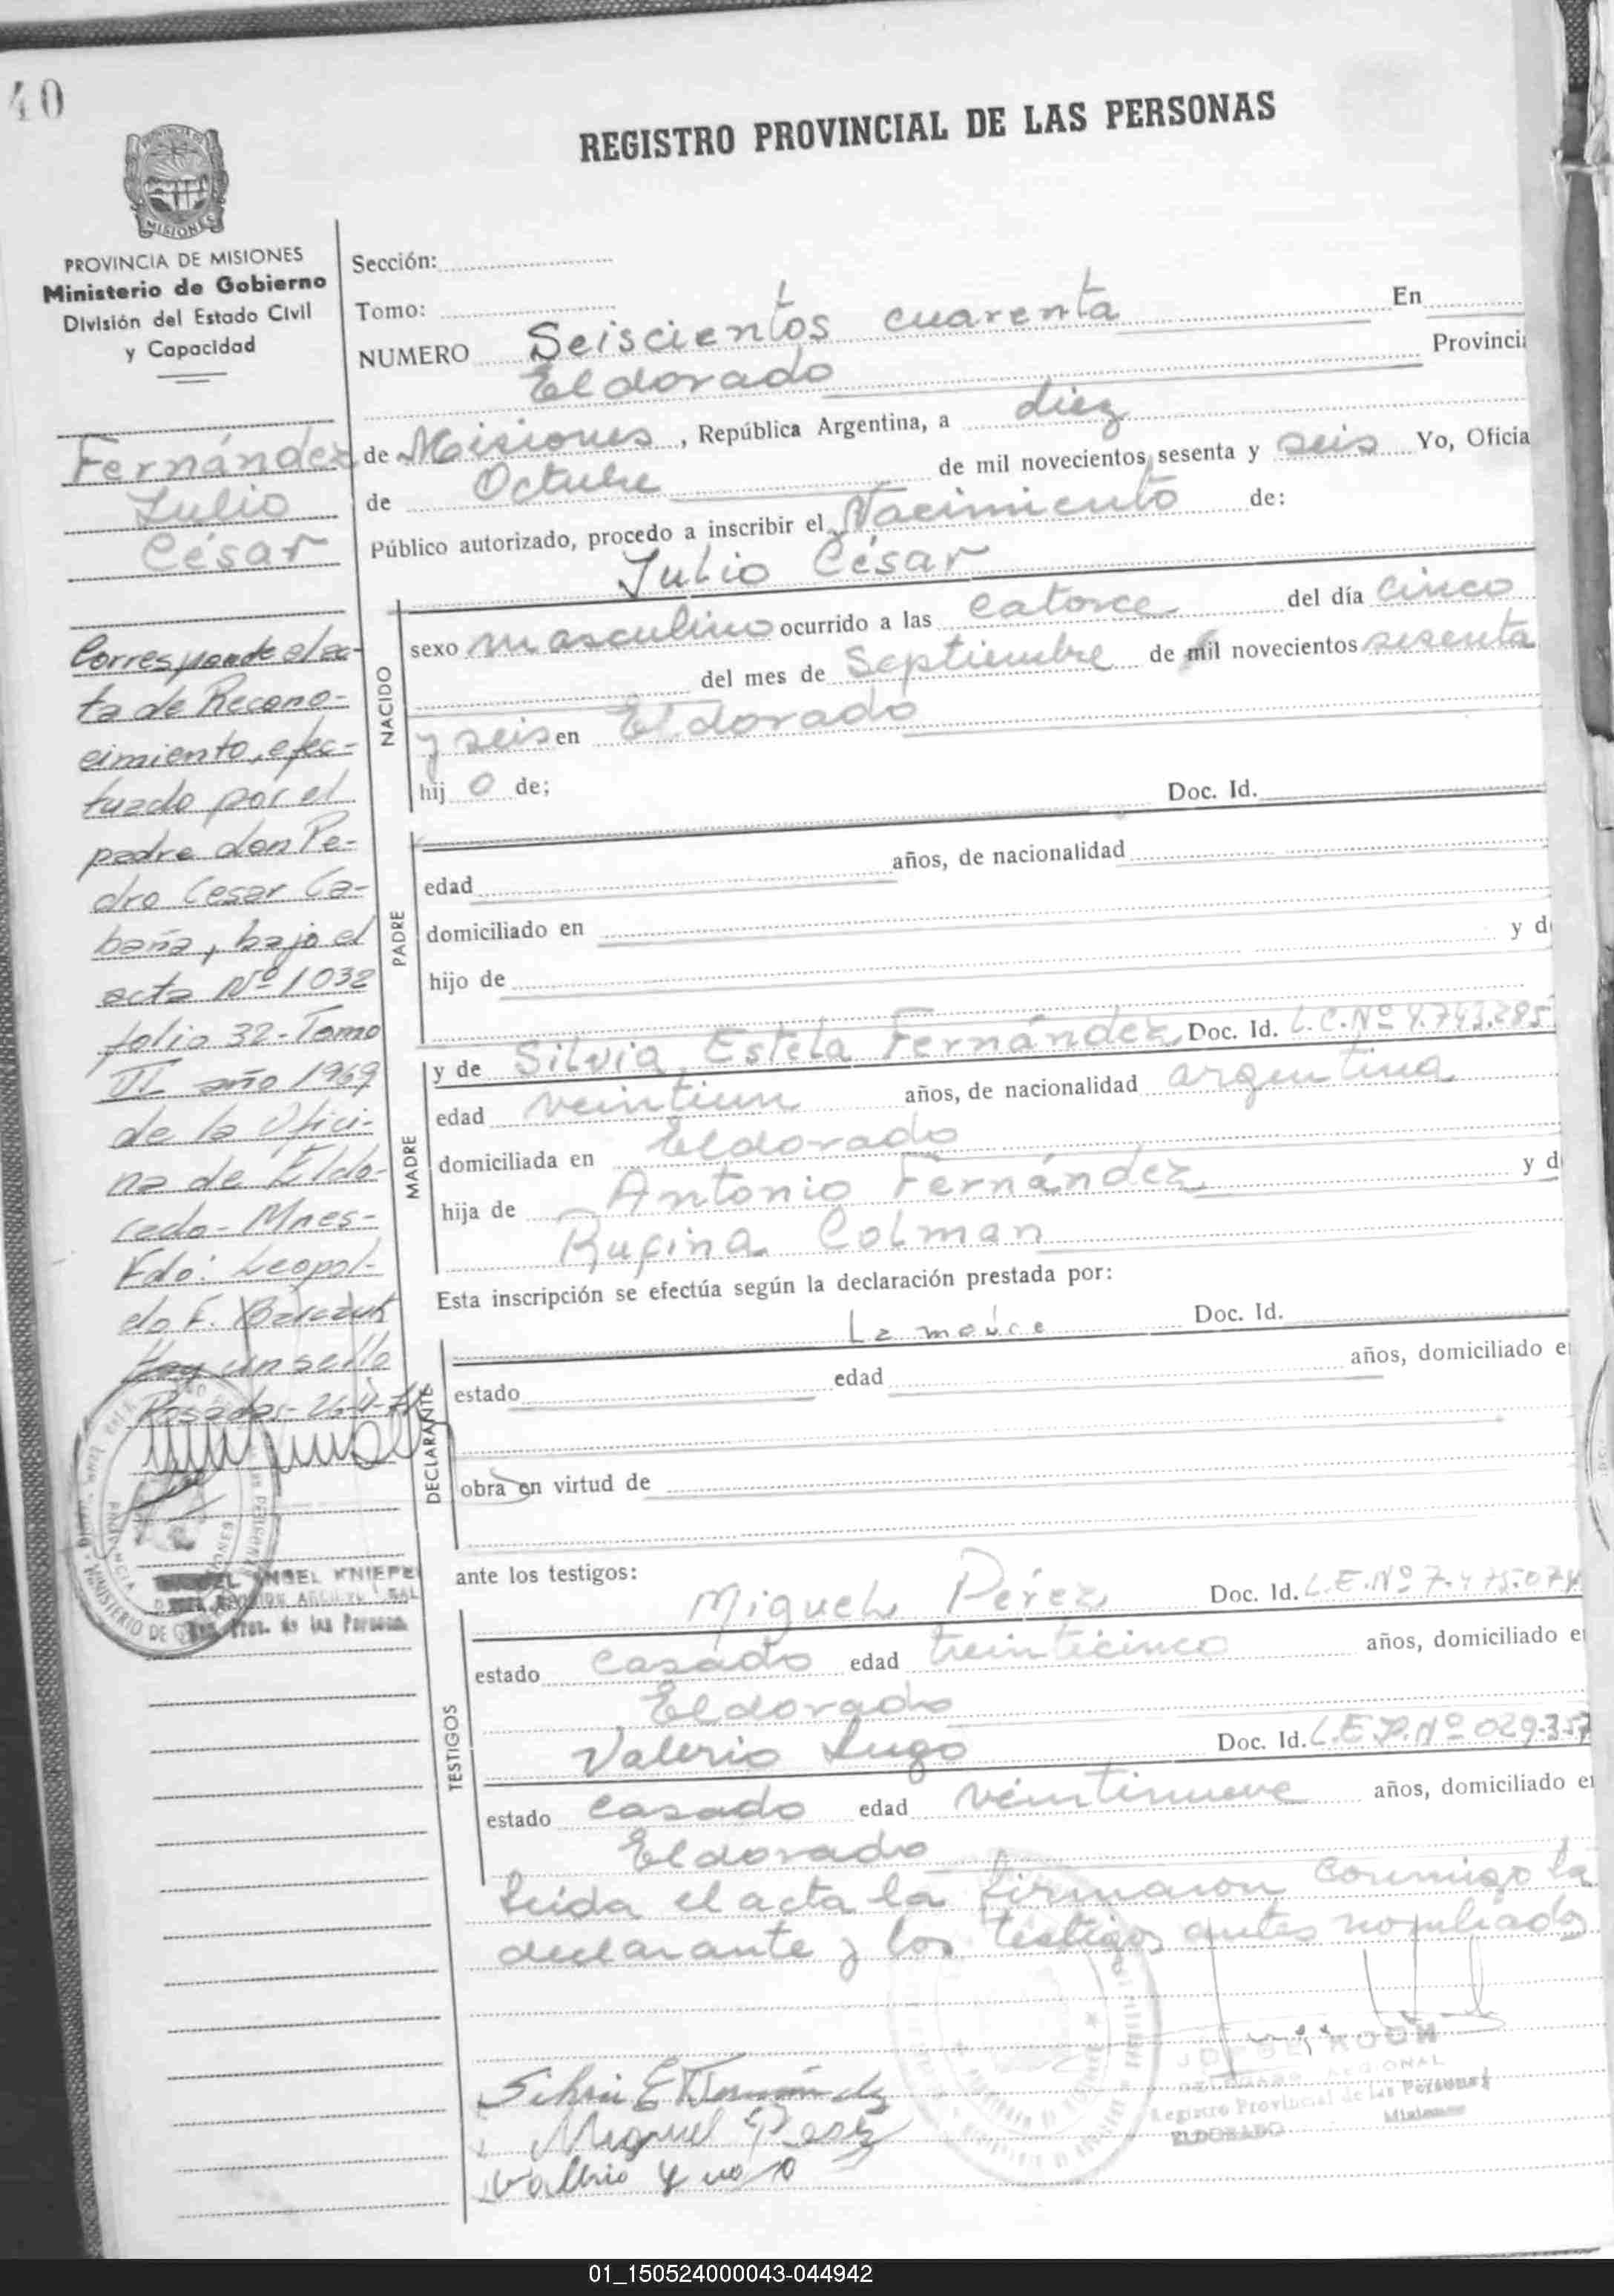 40
REGISTRO PROVINCIAL DE LAS PERSONAS
MISIONES
PROVINCIA DE MISIONES
Ministerio de Gobierno
División del Estado Civil
y Capacidad
Fernández
Julio
César
Corresponde al ac-
ta de Recono-
cimiento, efec-
tuado por el
padre don Pe-
dro Cesar Ca-
baña, bajo el
acta Nº 1032
folio 32 - Tomo
VI año 1969
de la Ofici-
na de Eldo-
rado - Mnes -
Fdo: Leopol-
do F.
Hay un sello
Posadas -
ANGEL KNIEPE
Prov. de las Personas
Sección:
Tomo:
NUMERO Seiscientos cuarenta En
Eldorado Provinci
de Misiones, República Argentina, a diez
de Octubre de mil novecientos sesenta y seis Yo, Oficia
Público autorizado, procedo a inscribir el Nacimiento de:
Julio César
NACIDO
sexo masculino ocurrido a las catorce del día cinco
del mes de Septiembre de mil novecientos sesenta
y seis en Eldorado
hij o de; Doc. Id.
PADRE
edad años, de nacionalidad
domiciliado en
hijo de y d
MADRE
y de Silvia Estela Fernández Doc. Id. L.C.Nº
edad veintiun años, de nacionalidad argentina
domiciliada en Eldorado
hija de Antonio Fernández y d
Rufina Colman
Esta inscripción se efectúa según la declaración prestada por:
DECLARANTE
La madre Doc. Id.
estado edad años, domiciliado e
obra en virtud de
ante los testigos:
TESTIGOS
Miguel Pérez Doc. Id. L.E.Nº 7.475.074
estado casado edad treinticinco años, domiciliado e
Eldorado
Valerio Lugo Doc. Id.
estado casado edad veintinueve años, domiciliado e
Eldorado
Leida el acta la firmaron conmigo la
declarante y los testigos antes nombrados
Silvia E Fernández
Miguel Perez
JORGE
REGIONAL
Registro Provincial de las Personas
ELDORADO Misiones
01_150524000043-044942